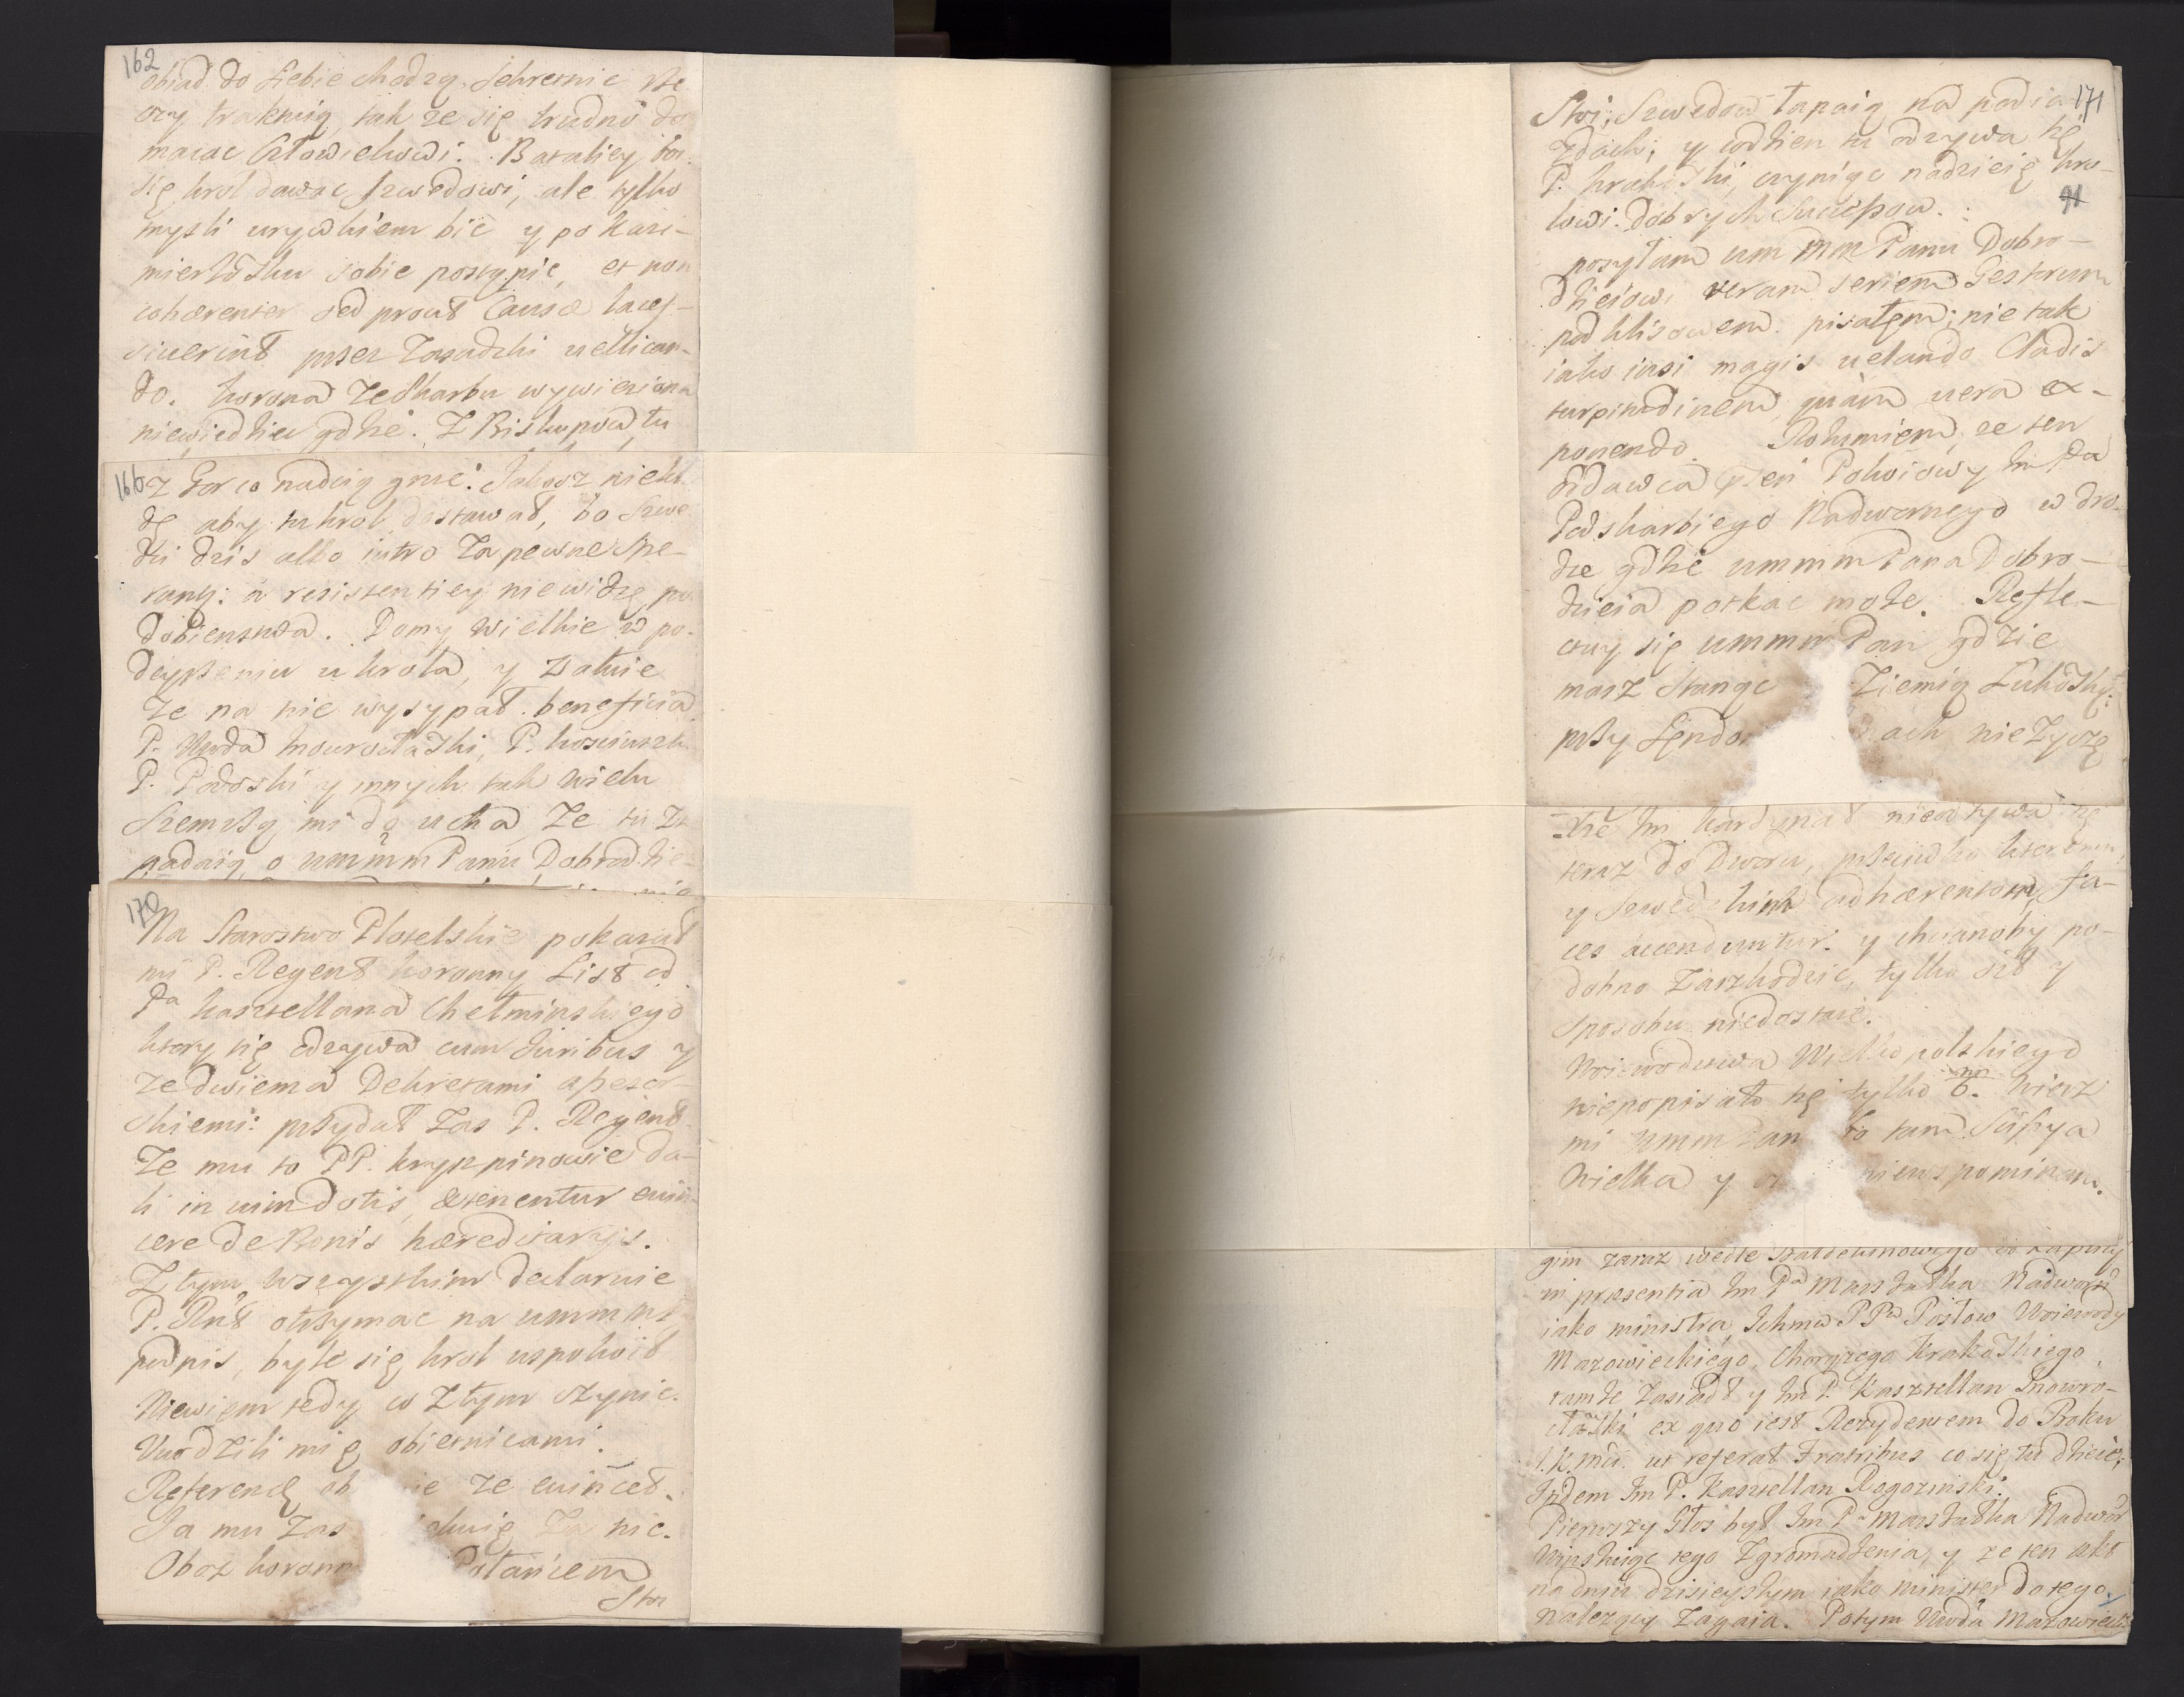 162
obiad do siebie chodzą. Sekretnie rze
czy traktuią, tak ze się trudno do
macac Człowiekowi. Bataliey boi
się krol dawac Szwedowi, ale tylko
mysli urywkiem bić y po Kazi-
mierowsku sobie postąpić, et non
cohærenter sed prout Causæ laces-
siuerint przez Zasadzki uellican-
do. korona ze Skarbu wywieziona
niewiedziec gdzie. Z Biskupow tu
166
z Gor co nadciągnąć. Jakosz nieh
dę aby tu krol dostawał, bo Szwe
dzi dzis albo iutro Za pewne Spe-
rany: a resistentiey niewidzę po
dobienstwa. Domy wielkie w po-
deyrzeniu u krola, y załuie
Ze na nie wysypał beneficia
P. Wwda Inowrocławski, P. kosciuszk
P. Potoski y innych tak wielu
Szemrzą mi do ucha Ze tu Zt
gadaią o ummm Panu Dobrodzie-
170
Na Starostwo Płotelskie pokazał
mi P. Regent koronny List od
Pa kasztellana Chełminskiego
ktory się odzywa cum Iuribus y
ze dwiema Dekretami assesor-
skiemi: przydał Zas P. Regent
Ze mu to PP. kryszpinowie da-
li in uim dotis, & tenentur euin
cere de Bonis hæreditarys.
Z tym wszystkim declaruie
P. Rnt otrzymac na ummm
podpis, byle się krol uspokoił
Niewiem tedy co Z tym czynic.
Uwodzili mię obietnicami.
Referend ob ie ze euincet.
Ja mu Zas kuię Za nic.
Oboz koronn Połańcem
Stoi
171
Stoi; Szwedow łapaią na podia
zdach; y codzien tu odzywa się
P. krakoski, czyniąc nadzieię kro-
lowi dobrych sucessow.
91
posyłam um mm Panu Dobro-
dzieiowi veram seriem Gestorum
pod klisowem. pisałem; nie tak
iako insi magis uelando Cladis
turpitudinem, quàm uera ex-
ponendo. Rozumiem, ze ten
oddawca Pokoiowy Im Pa
Podskarbiego Nadwornego w dro-
dze gdzie ummm Pana Dobro-
dzieia potkac może. Refle-
ctuy się ummm Pan gdzie
masz Stanąc Ziemią Lukoską:
przy Sendo ach nie Zyczę
Im kardynał nieodzywa się
teraz do Dworu, przeciwko ktoremu
y Szwedzkim adhærentom fa-
ces accenduntur. y chcianoby po-
dobno Zaszkodzić, tylko sił y
Sposobu niedostaie.
Woiewodztwa Wielkopolskiego
niepopisało się tylko 6. Wierz
mi ummm Pan to tam Suspya
Wielka y niewspominam.
gim zaraz wedle
in præsentia Im Pa Marszałka Nadwor
iako ministra, Ichmw PPw Posłow Woiewody
Mazowieckiego, Chorązego Krakoskiego,
tamze zasiadł y Im P. Kasztellan Inowro-
cławski ex quo iest Rezydentem do Boku
I.K.mci. ut referat Fratribus co się tu dzieie,
Ibidem Im P. Kasztellan Rogozinski.
Pierwszy Głos był Im Pa Marszałka Nadwor
Winszuiąc tego Zgromadzenia, y ze ten akt
na dniu dzisieyszym iako minister do tego
nalezący Zagaia. Potym Wwda Mazowieck